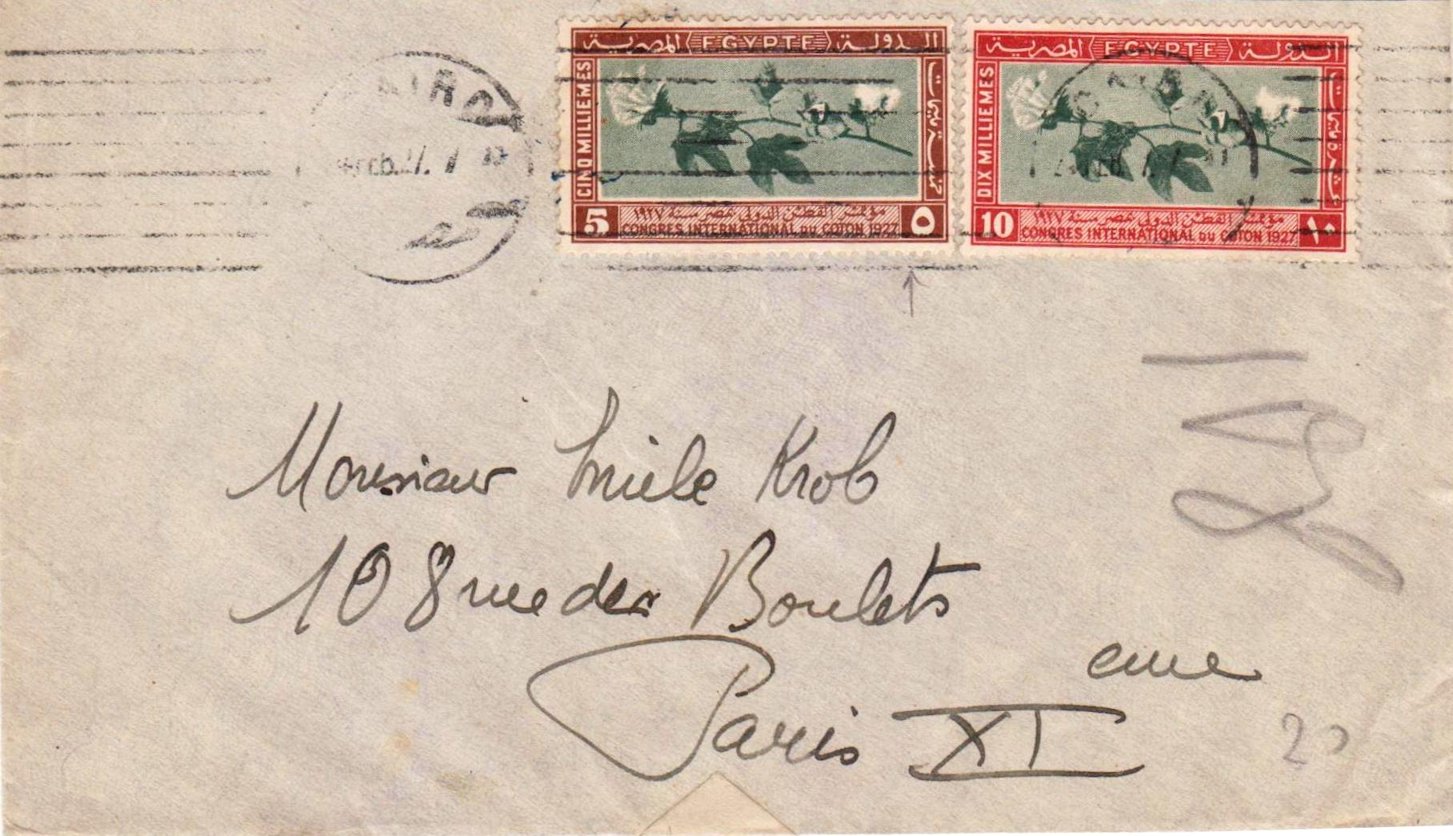 الدولة (EGYPTE) المصرية
CINQ MILLIEMES
خمسة مليمات
مؤتمر القطن الدولي بمصر سنة ١٩٢٧
5 CONGRES INTERNATIONAL DU COTON 1927 ٥
الدولة (EGYPTE) المصرية
DIX MILLIEMES
عشرة مليمات
مؤتمر القطن الدولي بمصر سنة ١٩٢٧
10 CONGRES INTERNATIONAL DU COTON 1927 ١٠
CAIRO
Monsieur Emile Krob
108 rue des Boulets
Paris XI eme
20